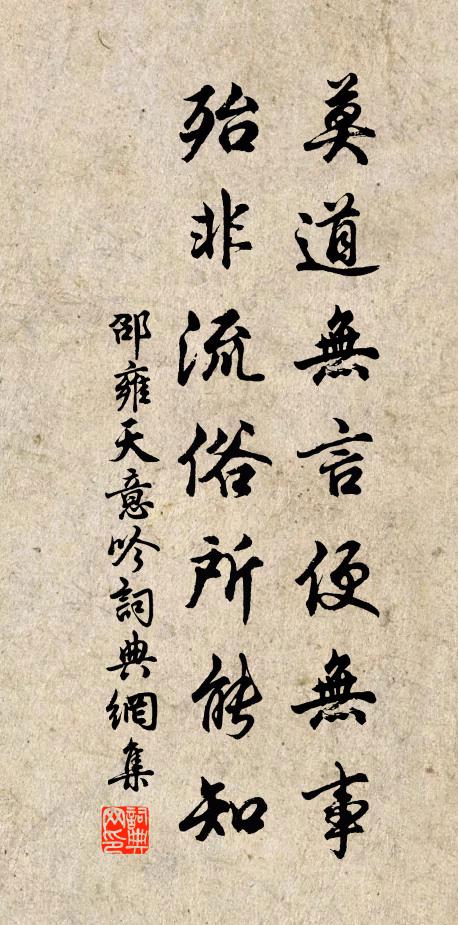 莫道無言便無事
殆非流俗所能知
邵雍天意吟詞典網集
詞典網印